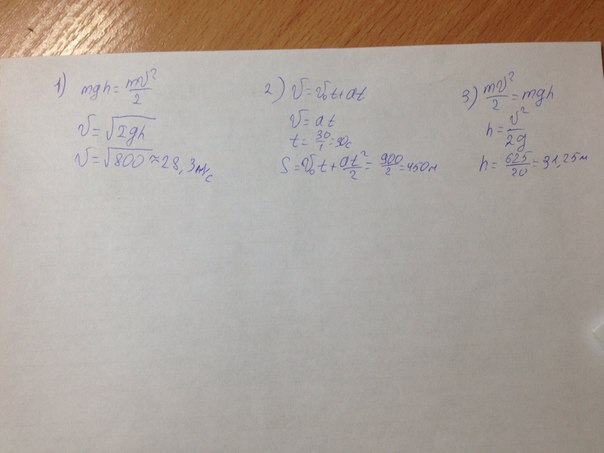 1) mgh = mv²/2
v = √2gh
v = √800 ≈ 28,3 м/с
2) v = v₀t + at
v = at
t = 30/1 = 30с
S = v₀t + at²/2 = 900/2 = 450м
3) mv²/2 = mgh
h = v²/2g
h = 625/20 = 31,25м